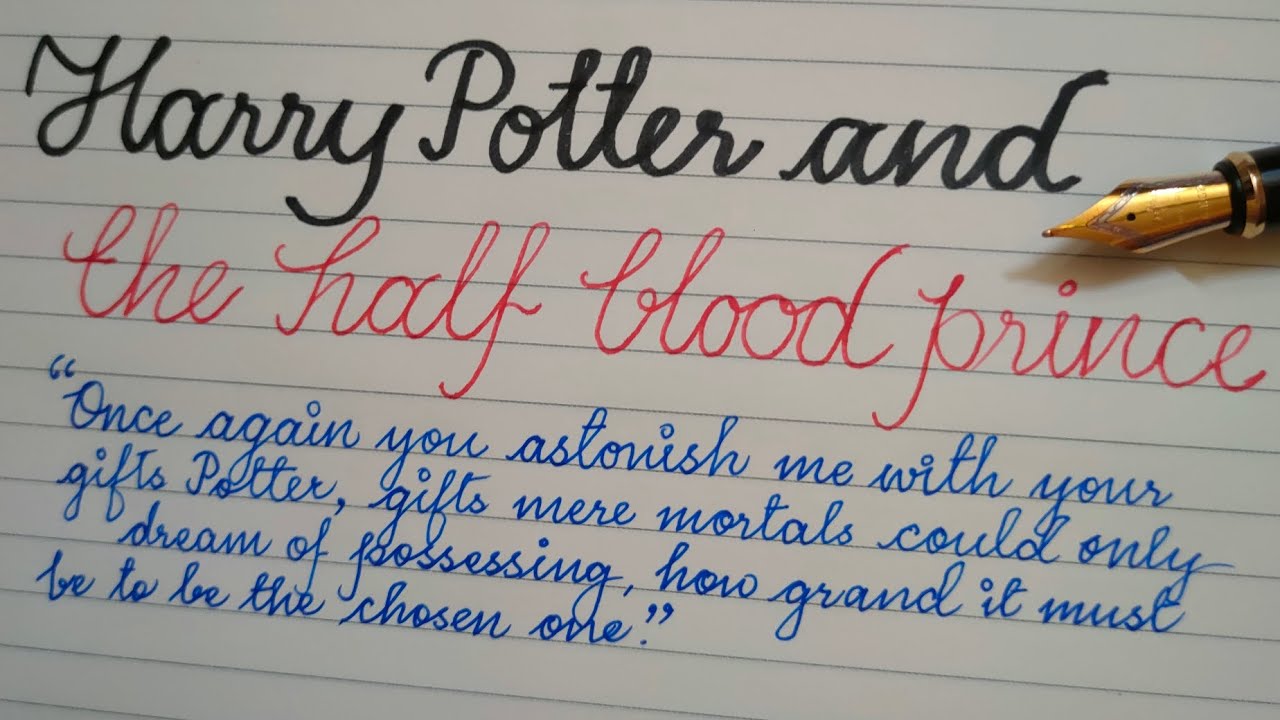 Harry Potter and
the half blood prince
“Once again you astonish me with your
gifts Potter, gifts mere mortals could only
dream of possessing, how grand it must
be to be the chosen one.”